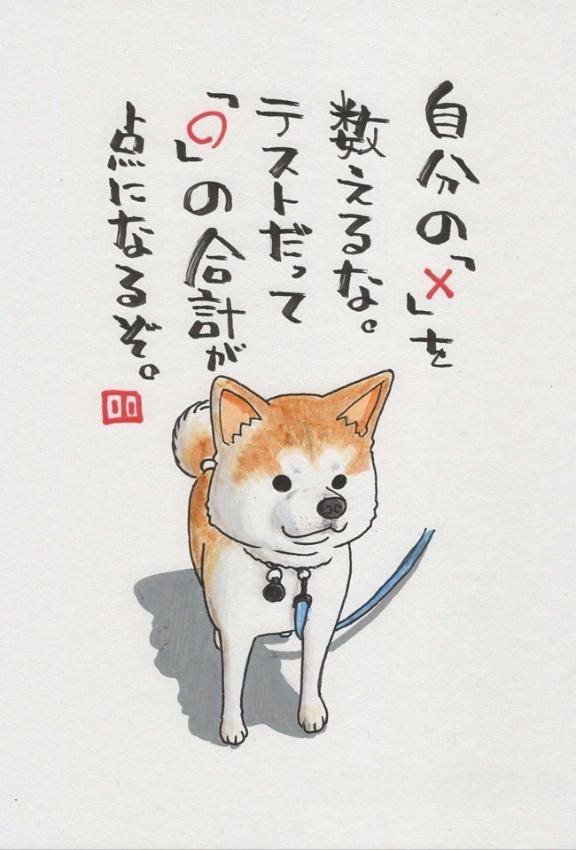 自分の「×」を
数えるな。
テストだって
「○」の合計が
点になるぞ。